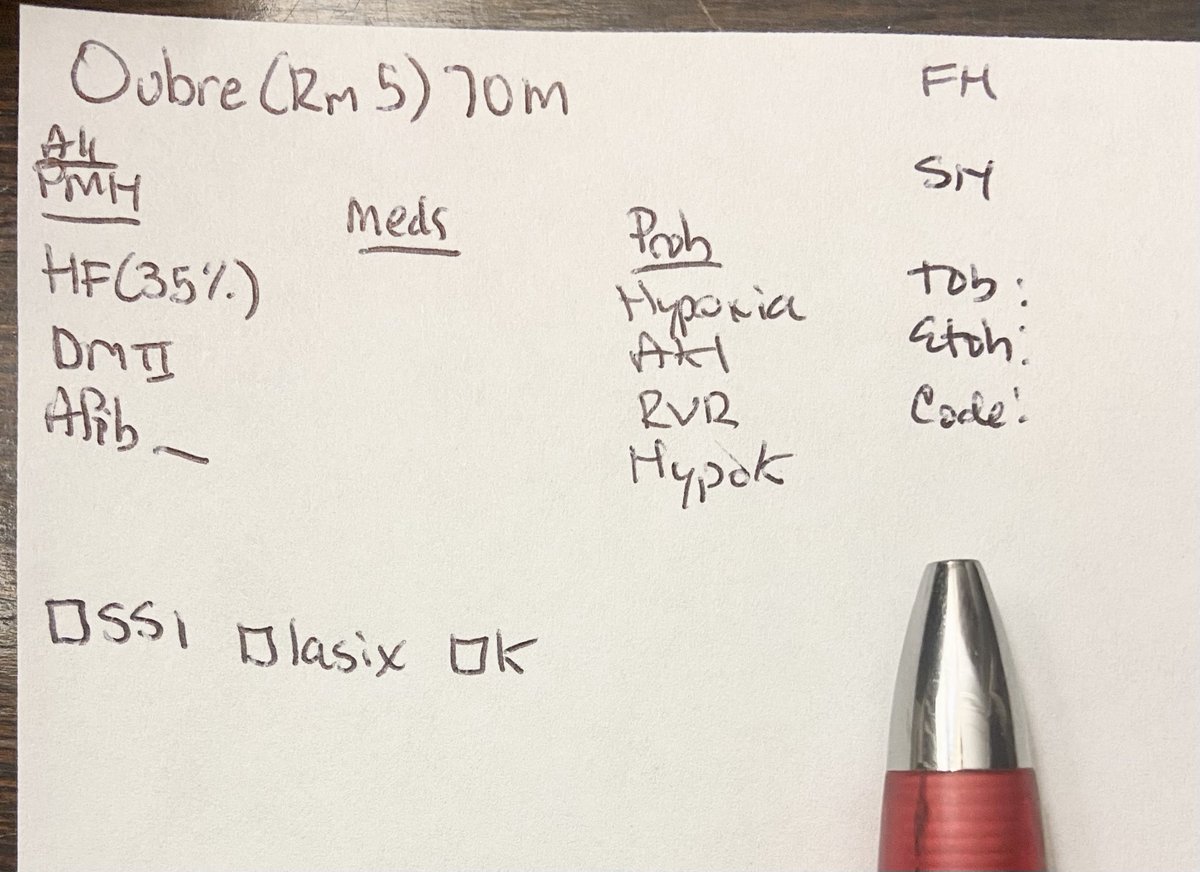 Oubre (Rm 5) 70m
All
PMH
HF (35%)
DM II
Afib
Meds
Prob
Hypoxia
AKI
RVR
HypoK
FH
SH
Tob:
Etoh:
Code:
☐ SSI ☐ lasix ☐ K